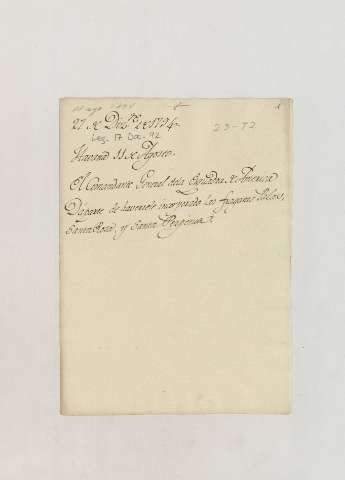 Mayo 1794
27 de Diz.re de 1794
Leg. 17 Doc. 92
23-92
Havana 11 de Agosto.
El Comandante General dela Esquadra de America
Dáparte de haversele incorporado las fragatas
Santa Rosa, y Santa